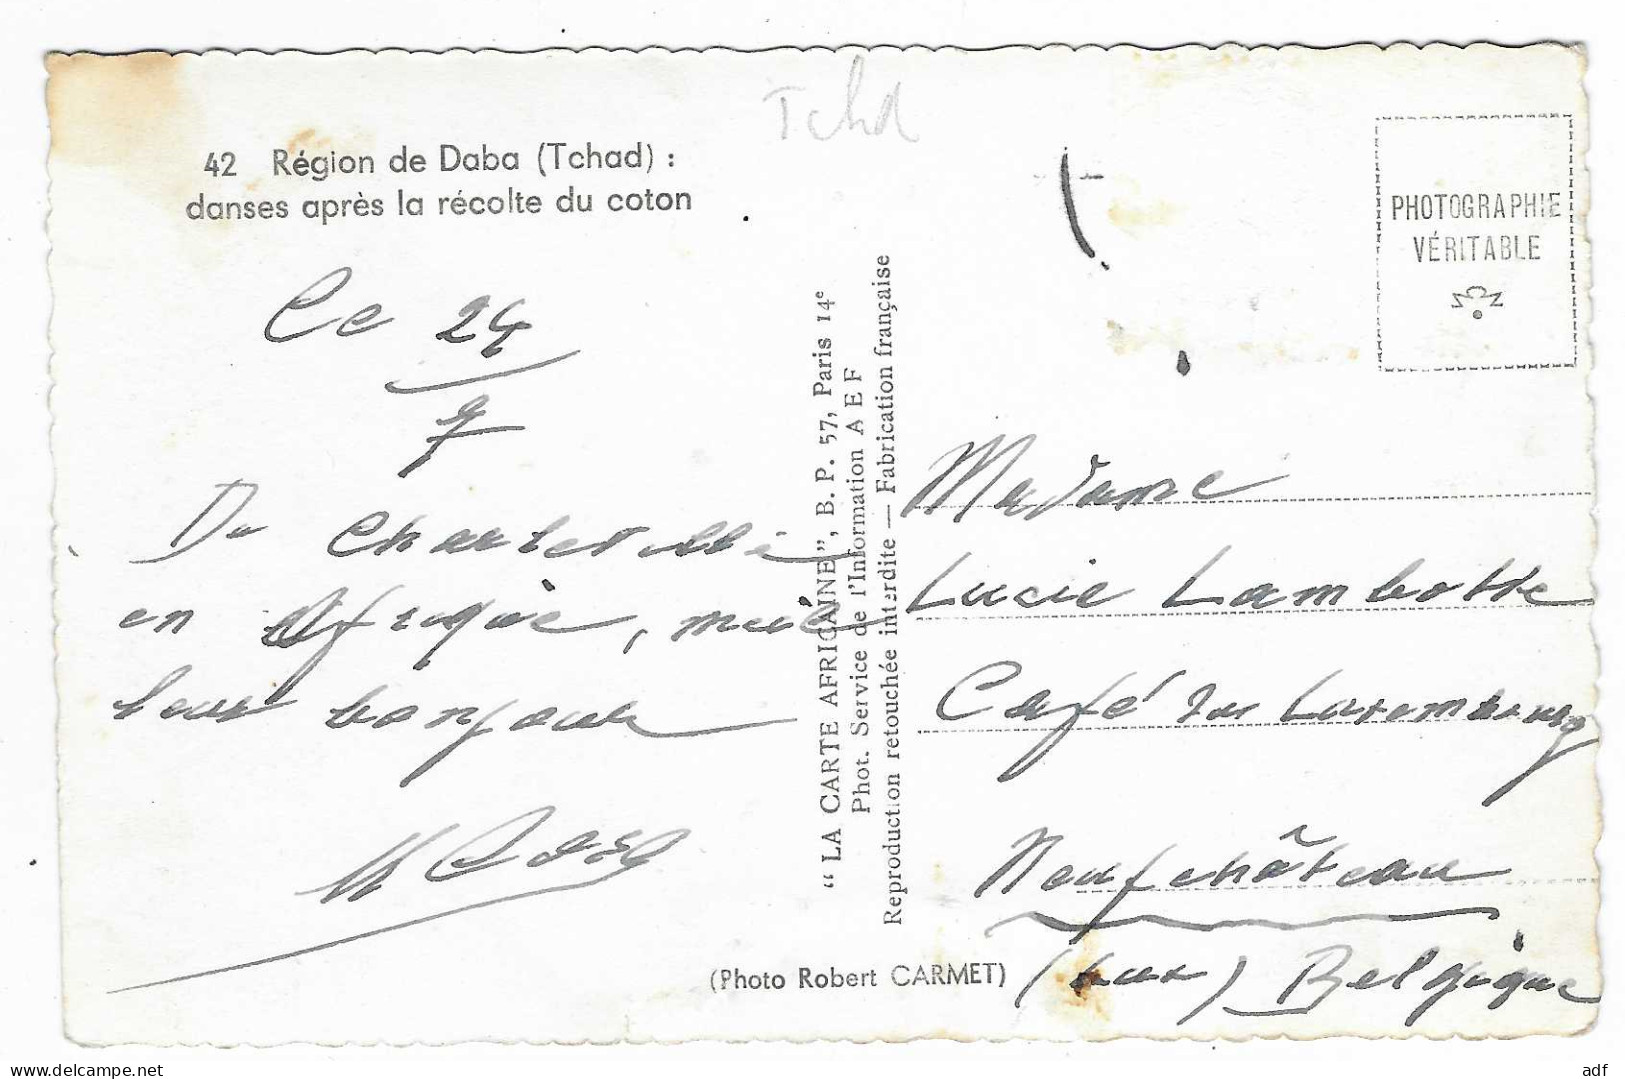 Tchd
42 Région de Daba (Tchad) :
danses après la récolte du coton
Ce 24
7
De Charleville
en Afrique, meil
leur bonjour
"LA CARTE AFRICAINE", B. P. 57, Paris 14e
Phot. Service de l'Information A E F
Reproduction retouchée interdite — Fabrication française
PHOTOGRAPHIE
VÉRITABLE
Madame
Lucie Lambotte
Café du Luxembourg
Neufchâteau
(Lux) Belgique
(Photo Robert CARMET)
delcampe.net
adf